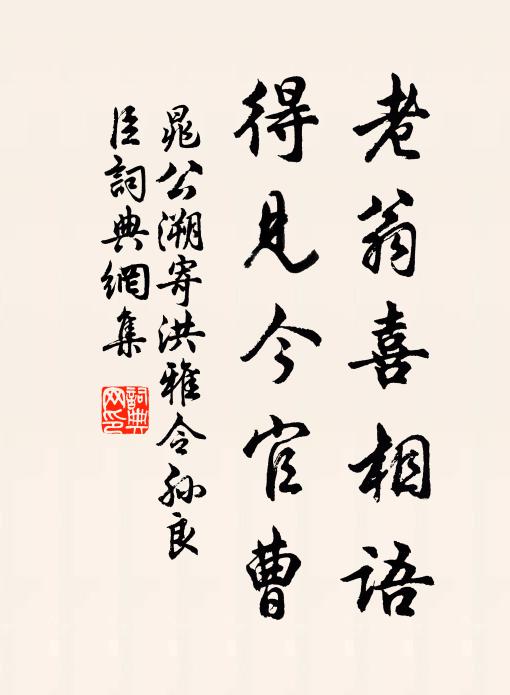 老翁喜相語
得見今官曹
晁公溯寄洪雅令孙良
臣詞典網集
詞典
网印